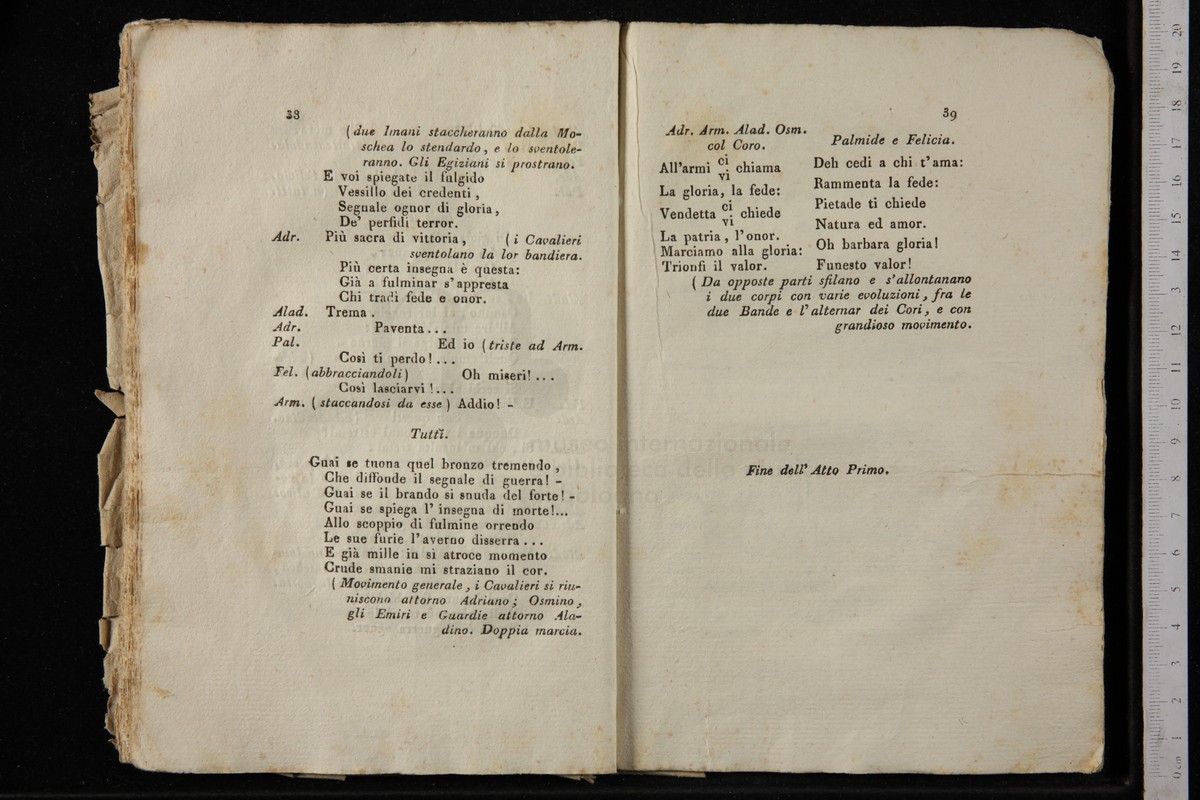 38
( due Imani staccheranno dalla Mo-
schea lo stendardo, e lo sventole-
ranno. Gli Egiziani si prostrano.
E voi spiegate il fulgido
Vessillo dei credenti,
Segnale ognor di gloria,
De' perfidi terror.
Adr. Più sacra di vittoria, ( i Cavalieri
sventolano la lor bandiera.
Più certa insegna è questa:
Già a fulminar s'appresta
Chi tradì fede e onor.
Alad. Trema.
Adr. Paventa...
Pal. Ed io (triste ad Arm.
Così ti perdo!...
Fel. (abbracciandoli) Oh miseri!...
Così lasciarvi!...
Arm. ( staccandosi da esse ) Addio! -
Tutti.
Guai se tuona quel bronzo tremendo,
Che diffonde il segnale di guerra! -
Guai se il brando si snuda del forte! -
Guai se spiega l'insegna di morte!...
Allo scoppio di fulmine orrendo
Le sue furie l'averno disserra...
E già mille in sì atroce momento
Crude smanie mi straziano il cor.
( Movimento generale, i Cavalieri si riu-
niscono attorno Adriano; Osmino,
gli Emiri e Guardie attorno Ala-
dino. Doppia marcia.
39
Adr. Arm. Alad. Osm.
col Coro.
All'armi ci
vi chiama
La gloria, la fede:
Vendetta ci
vi chiede
La patria, l'onor.
Marciamo alla gloria:
Trionfi il valor.
Palmide e Felicia.
Deh cedi a chi t'ama:
Rammenta la fede:
Pietade ti chiede
Natura ed amor.
Oh barbara gloria!
Funesto valor!
( Da opposte parti sfilano e s'allontanano
i due corpi con varie evoluzioni, fra le
due Bande e l'alternar dei Cori, e con
grandioso movimento.
Fine dell'Atto Primo.
museo internazionale
biblioteca della
bologna
0 cm 1 2 3 4 5 6 7 8 9 10 11 12 13 14 15 16 17 18 19 20